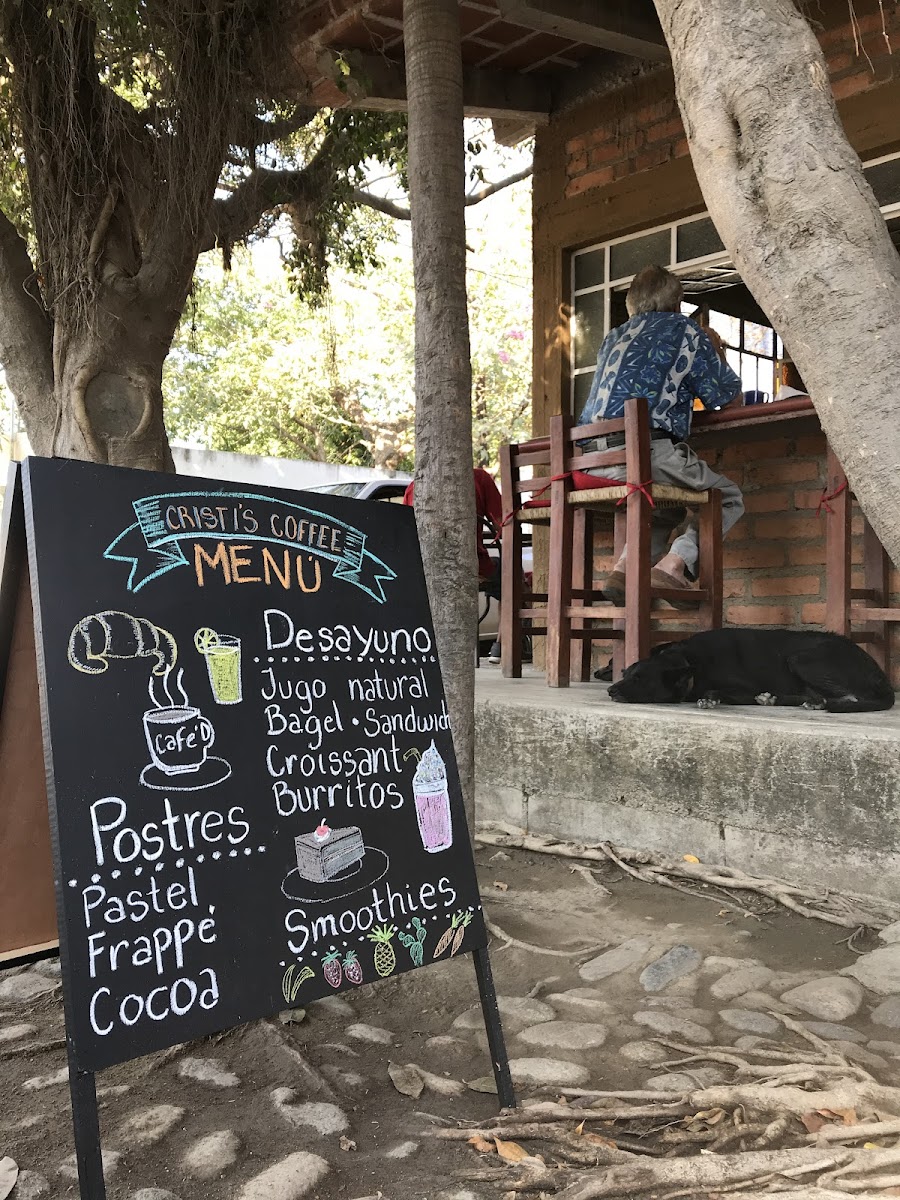 CRISTI'S COFFEE
MENÚ
Desayuno
Jugo natural
Bagel • Sandwich
Croissant
Burritos
Café
Postres
Pastel
Frappé
Cocoa
Smoothies